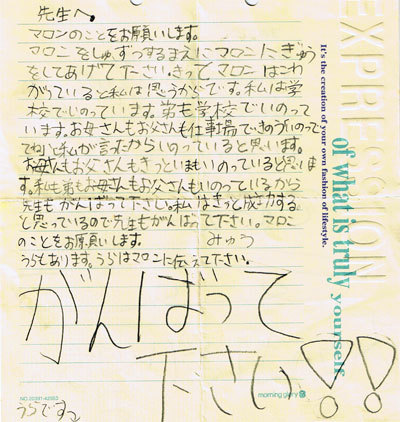 先生へ。
マロンのことをお願いします。
マロンをしゅずつするまえにマロンにぎゅう
をしてあげて下さい。きっとマロンはこわ
がっていると私は思うからです。私は学
校でいのっています。弟も学校でいのって
います。お母さんもお父さんも仕事場で
ねと私が言ったからいのっていると思います。
お母さんもお父さんもきっといまもいのっていると思いま
す。私も弟もお母さんもお父さんもいのっているから
先生もがんばって下さい。私はきっと成功する
と思っているので先生もがんばって下さい。マロン
のことをお願いします。 みゅう
うらもあります。うらはマロンに伝えて下さい。
がんばって
下さい!!
うらです
NO.20391-42583
morning glory
EXPRESSION
It's the creation of your own fashion of lifestyle.
of what is truly yourself